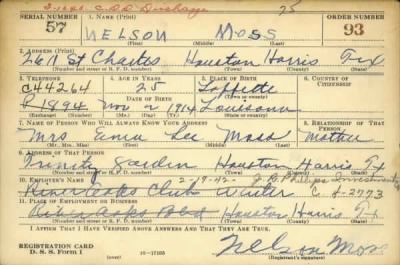 SERIAL NUMBER 1. NAME (Print) ORDER NUMBER
57 NELSON MOSS 93
(First) (Middle) (Last)
2. ADDRESS (Print)
2611 St Charles Houston Harris Tex
(Number and street or R. F. D. number) (Town) (County) (State)
3. TELEPHONE 4. AGE IN YEARS 5. PLACE OF BIRTH 6. COUNTRY OF CITIZENSHIP
C44264 25 Laffette
DATE OF BIRTH
Nov 2 1914 Louisana
(Mo.) (Day) (Yr.) (State or country)
7. NAME OF PERSON WHO WILL ALWAYS KNOW YOUR ADDRESS 8. RELATIONSHIP OF THAT PERSON
Mrs Emma Lee Moss Mother
(Mr., Mrs., Miss) (First) (Middle) (Last)
9. ADDRESS OF THAT PERSON
Trinity Garden Houston Harris Tx
(Number and street or R. F. D. number) (Town) (County) (State)
10. EMPLOYER'S NAME
River Oaks Club Waiter
11. PLACE OF EMPLOYMENT OR BUSINESS
River Oaks Blvd Houston Harris Tx
(Number and street or R. F. D. number) (Town) (County) (State)
I AFFIRM THAT I HAVE VERIFIED ABOVE ANSWERS AND THAT THEY ARE TRUE.
REGISTRATION CARD
D. S. S. Form 1 (over) Nelson Moss